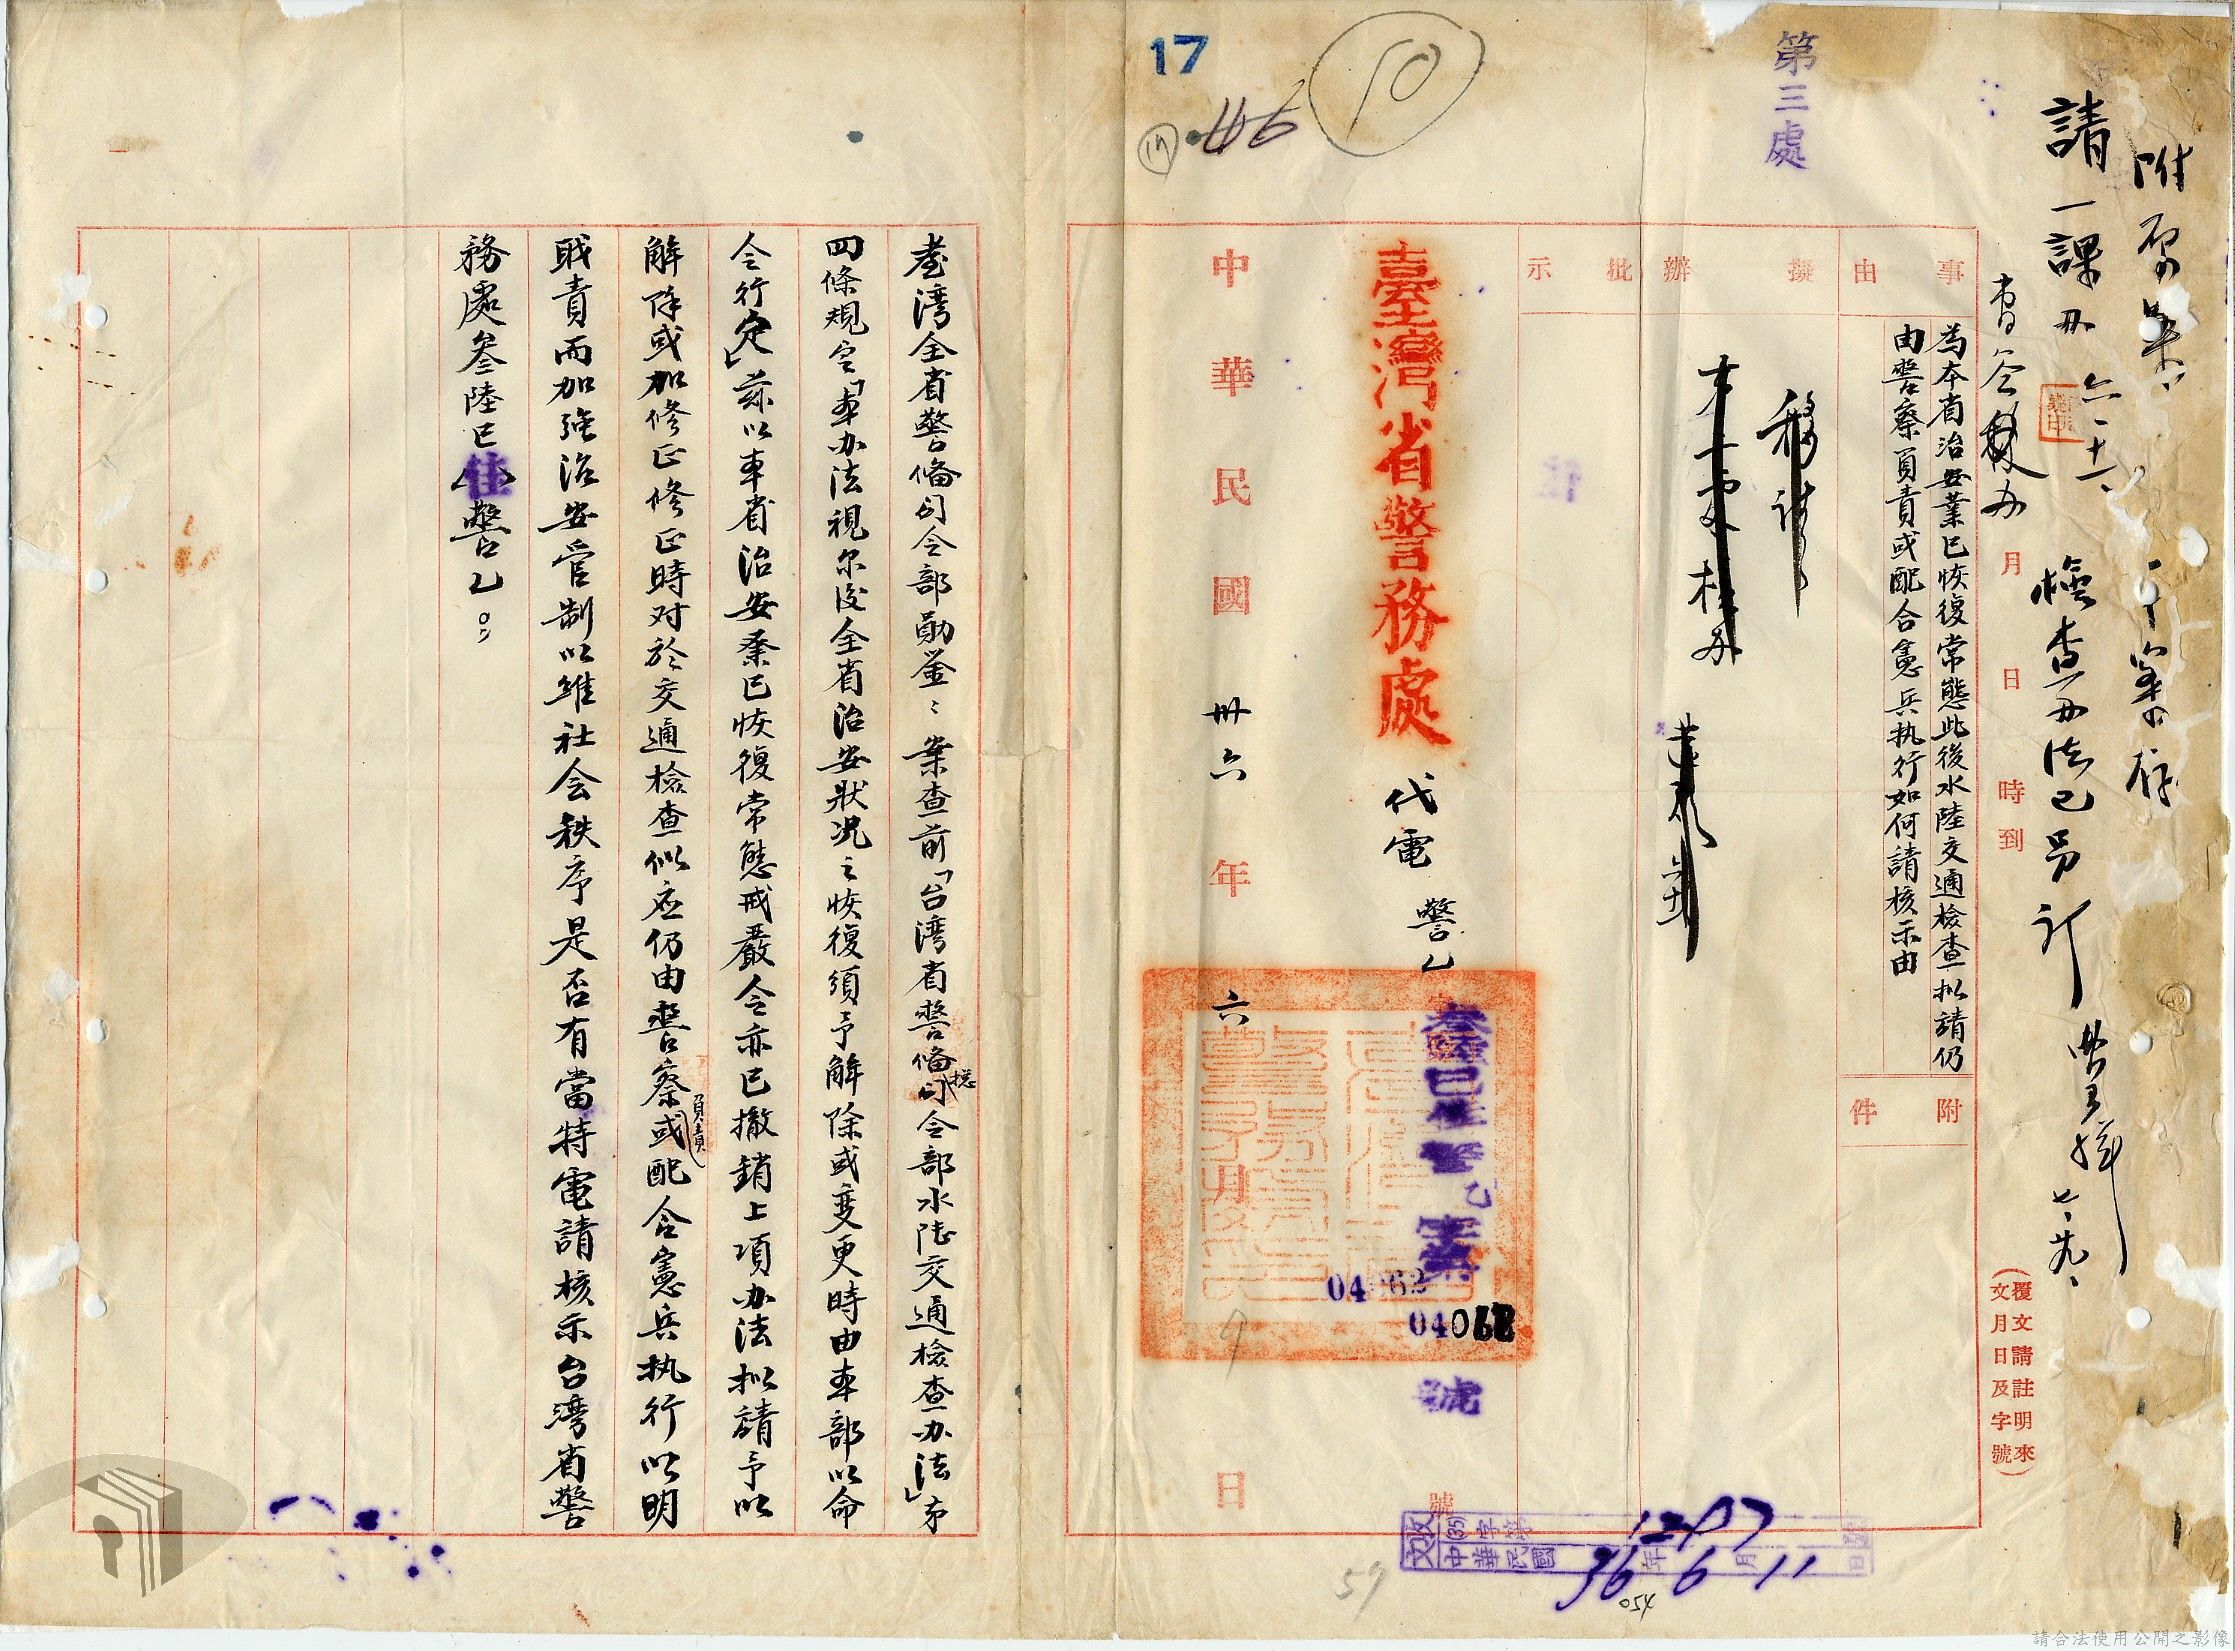 第三處
17
46
10
附
請一課
檢查
月日時到
(覆文請註明來
文月日及字號)
事由
為本省治安業已恢復常態此後水陸交通檢查拟請仍
由警察負責或配合憲兵执行如何請核示由
附件
擬辦
批示
臺灣省警務處
代電
警乙
叁陸巳佳警乙字第
04062
號
中華民國卅六年六月日
收文
(35)字第1297號
中華民國36年6月11日
054
59
臺湾全省警備司令部勛鉴:案查前「台湾省警備总司令部水陆交通檢查办法」第
四條規定「本办法視尔後全省治安狀况之恢復須予解除或变更時由本部以命
令行定」兹以本省治安業已恢復常態戒嚴令亦已撤銷上項办法拟請予以
解除或加修正修正時对於交通檢查似应仍由警察負責或配合憲兵执行以明
职責而加強治安管制以維社会秩序是否有當特電請核示台湾省警
務處叁陸巳佳警乙。
請合法使用公開之影像